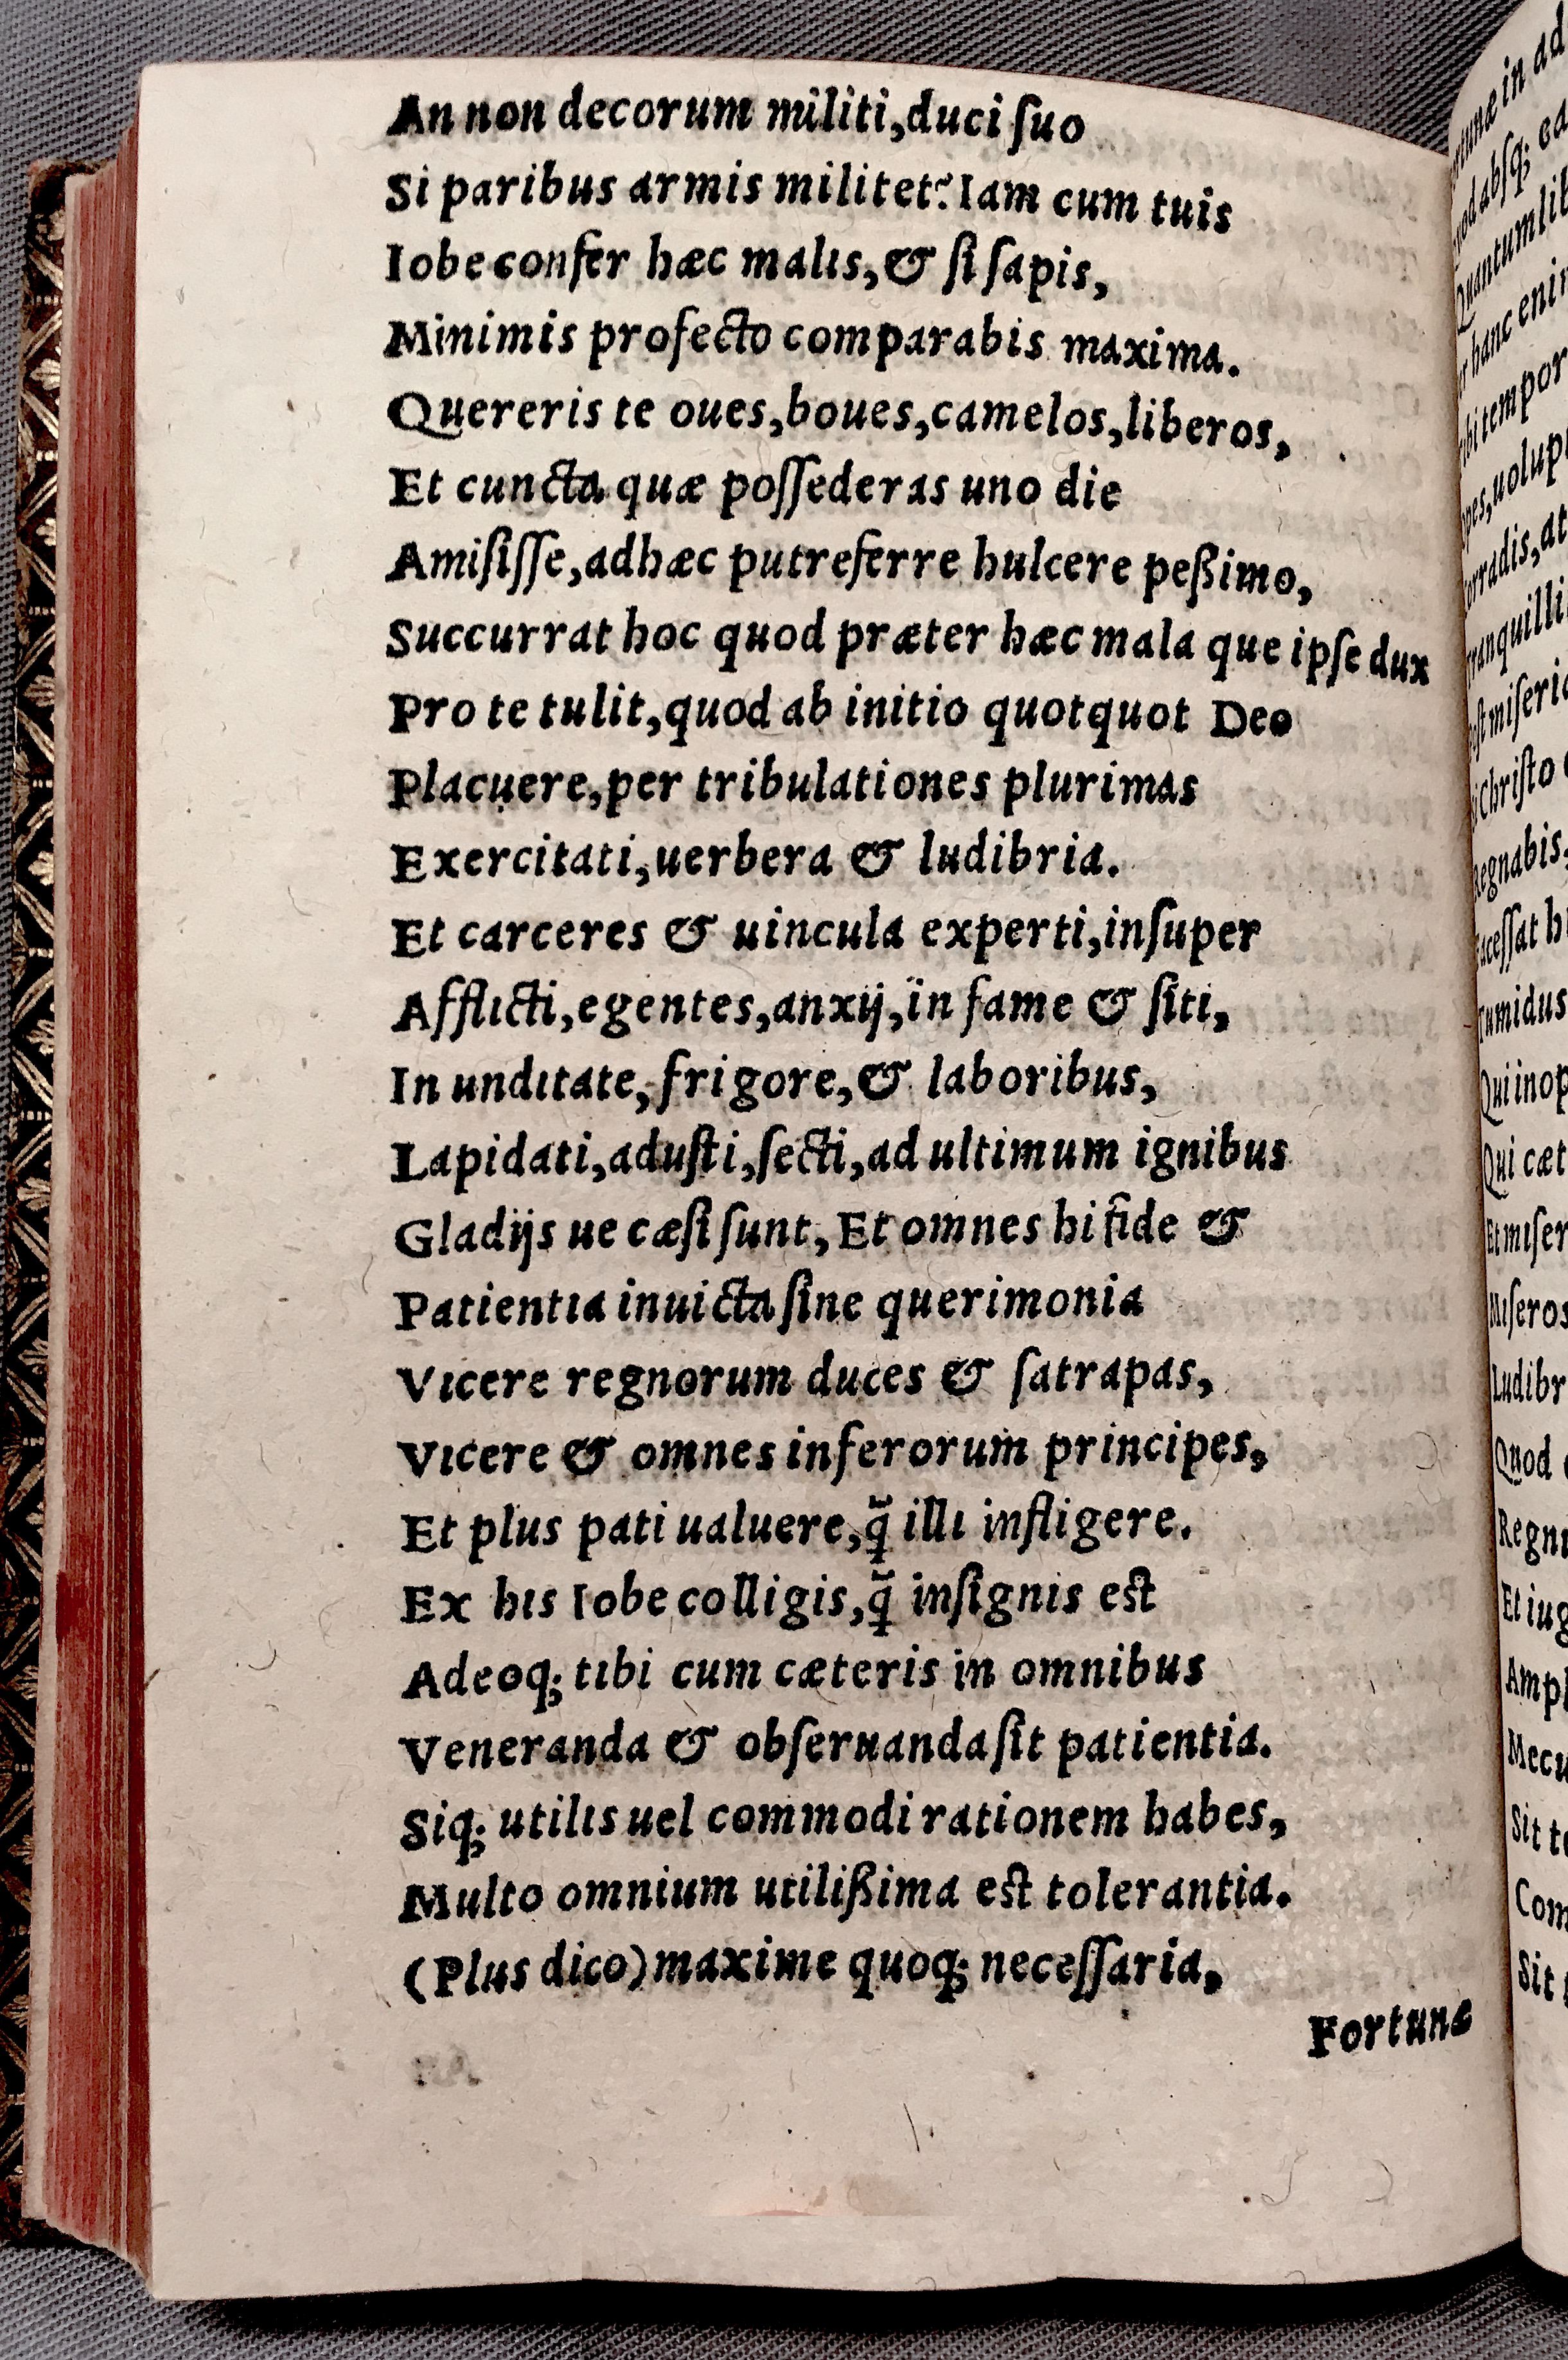 An non decorum militi,duci ſuo
Si paribus armis militet? Iam cum tuis
Iobe confer hæc malis,& ſi ſapis,
Minimis profecto comparabis maxima.
Quereris te oues,boues,camelos,liberos,
Et cuncta quæ poſſederas uno die
Amiſiſſe,adhæc putreferre hulcere peßimo,
Succurrat hoc quod præter hæc mala que ipſe dux
Pro te tulit,quod ab initio quotquot Deo
Placuere,per tribulationes plurimas
Exercitati,uerbera & ludibria.
Et carceres & uincula experti,inſuper
Afflicti,egentes,anxij,in fame & ſiti,
In unditate,frigore,& laboribus,
Lapidati,aduſti,ſecti,ad ultimum ignibus
Gladijs ue cæſi ſunt,Et omnes hi fide &
Patientia inuicta ſine querimonia
Vicere regnorum duces & ſatrapas,
Vicere & omnes inferorum principes,
Et plus pati ualuere,q̃ illi infligere.
Ex his Iobe colligis,q̃ inſignis eſt
Adeoq; tibi cum cæteris in omnibus
Veneranda & obſeruanda ſit patientia.
Siq; utilis uel commodi rationem habes,
Multo omnium utilißima eſt tolerantia.
(Plus dico)maxime quoq; neceſſaria,
Fortunæ